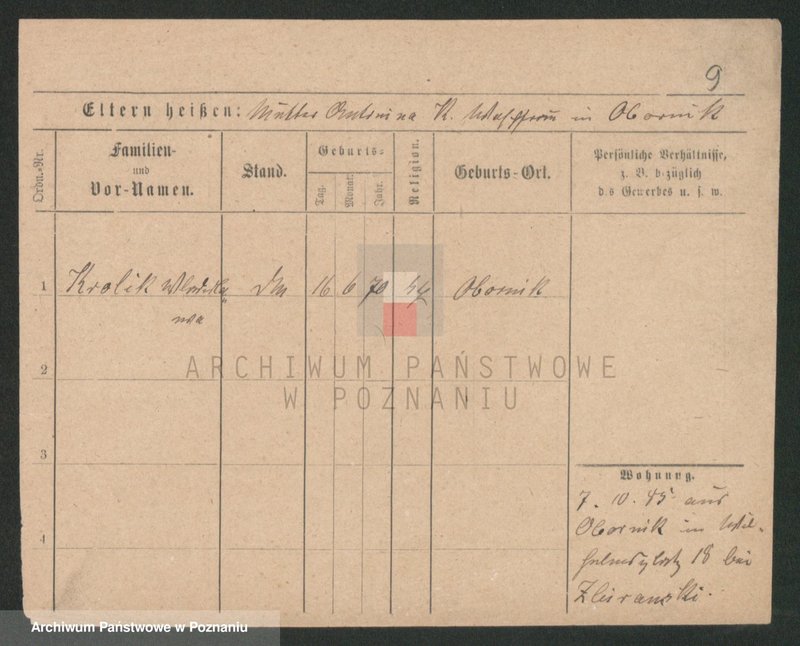 9
Eltern heißen: Mutter Antonina K. Waschfrau in Obornik
Ordn.-Nr.
Familien-
und
Vor-Namen.
Stand.
Geburts-
Tag.
Monat.
Jahr.
Religion.
Geburts-Ort.
Persönliche Verhältnisse,
z. B. bezüglich
des Gewerbes u. s. w.
1 Krolik Wladisla- 16 6 70 Obornik
wa
2
3
4
ARCHIWUM PAŃSTWOWE
W POZNANIU
Wohnung.
7. 10. 95 aus
Obornik in Wil-
helmsplatz 18 bei
Archiwum Państwowe w Poznaniu